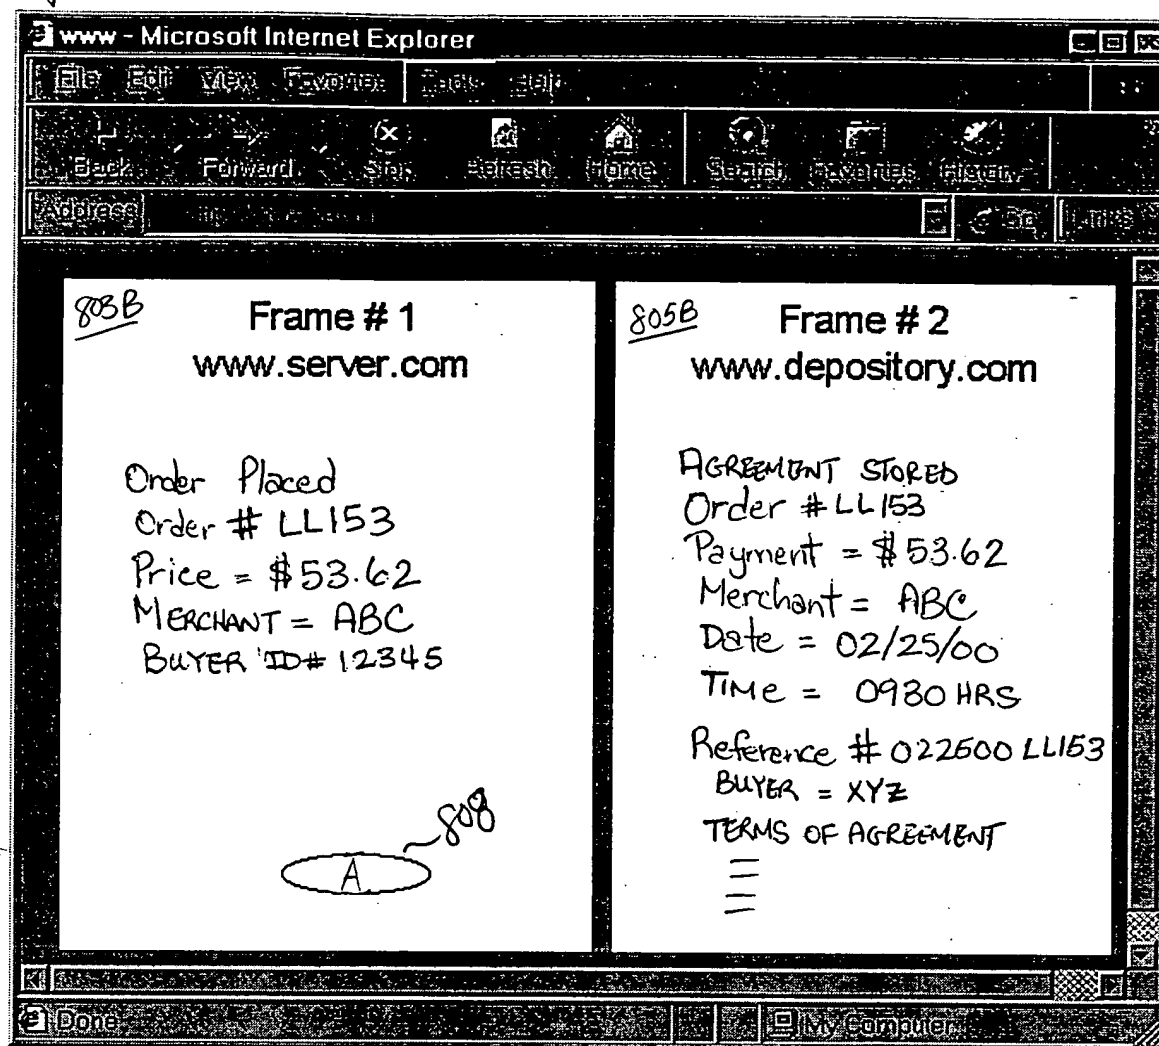 www - Microsoft Internet Explorer
File Edit View Favorites Tools Help
Back Forward Stop Refresh Home Search Favorites History
Address Go Links
803B
Frame # 1
www.server.com
Order Placed
Order # LL153
Price = $53.62
MERCHANT = ABC
BUYER ID# 12345
A
808
805B
Frame # 2
www.depository.com
AGREEMENT STORED
Order # LL153
Payment = $53.62
Merchant = ABC
Date = 02/25/00
TIMe = 0930 HRS
Reference # 022500 LL153
BUYER = XYZ
TERMS OF AGREEMENT
Done My Computer